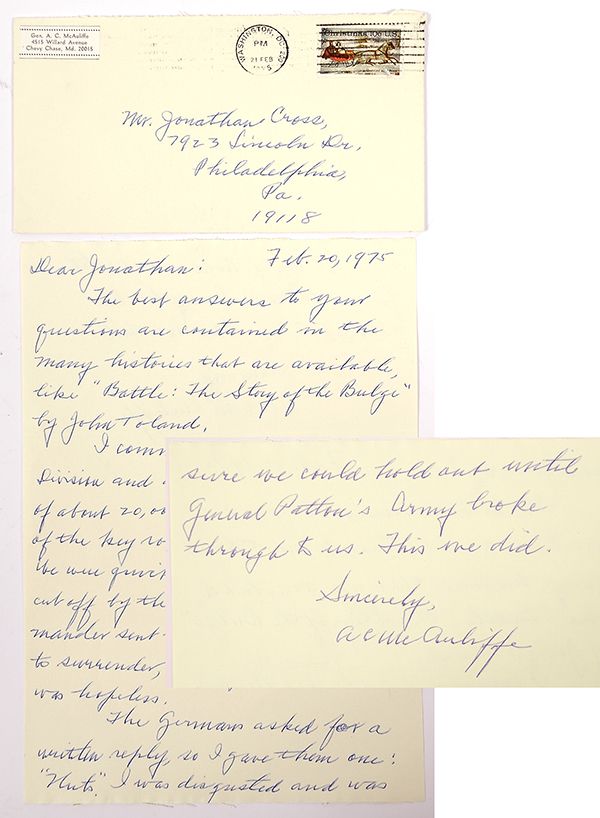 Gen. A. C. McAuliffe
4515 Willard Avenue
Chevy Chase, Md. 20015
WASHINGTON, DC
PM
21 FEB
Christmas 10c U.S.
Mr. Jonathan Cross,
7923 Lincoln Dr.
Philadelphia,
Pa.
19118
Feb. 20, 1975
Dear Jonathan:
The best answers to your
questions are contained in the
many histories that are available,
like "Battle: The Story of the Bulge"
by John Toland.
I com
Division and
of about 20,00
of the key ro
We were
cut off by the
mander sent
to surrender,
was hopeless.
The Germans asked for a
written reply, so I gave them one:
"Nuts". I was disgusted and was
sure we could hold out until
General Patton's Army broke
through to us. This we did.
Sincerely,
A C McAuliffe